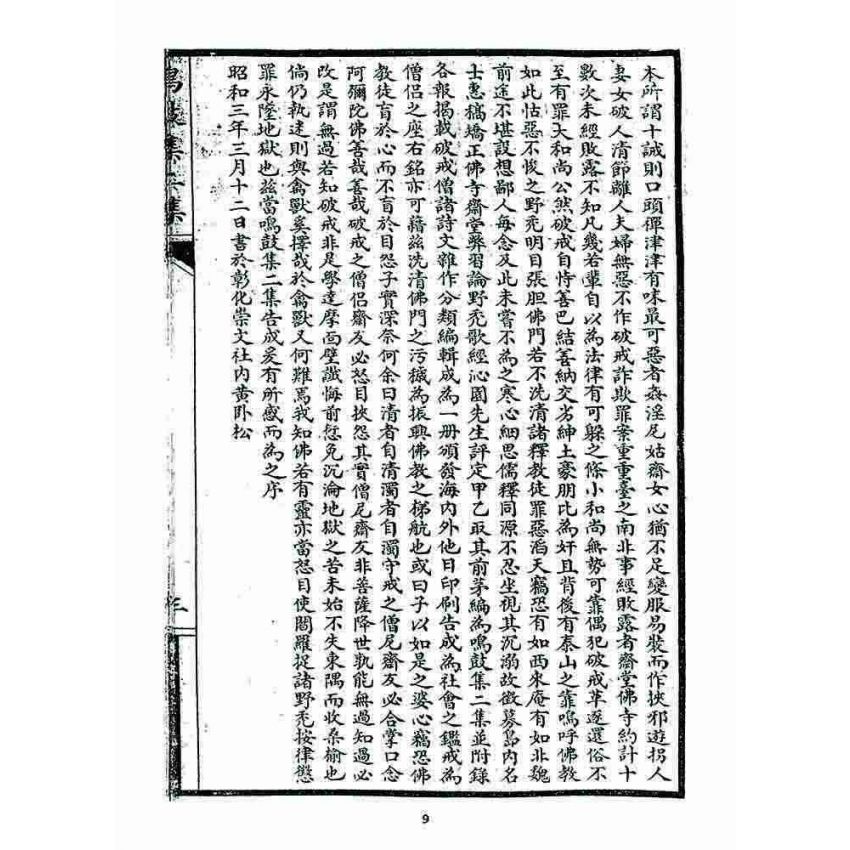 本所謂十誡則口頭彈津津有味最可惡者姦淫尼姑齋女心猶不足變服易裝而作挾邪遊拐人
妻女破人清節離人夫婦無惡不作破戒詐欺罪案重重臺之南北事經敗露者齋堂佛寺約計十
數次未經敗露不知凡幾若輩自以為法律有可躲之條小和尚無勢可靠偶犯破戒革逐還俗不
至有罪大和尚公然破戒自恃善巴結善納交劣紳土豪朋比為奸且背後有泰山之靠嗚呼佛教
如此怙惡不悛之野禿明目張胆佛門若不洗清諸釋教徒罪惡滔天竊恐有如西來庵有如北魏
前途不堪設想鄙人每念及此未嘗不為之寒心細思儒釋同源不忍坐視其沉溺故徵募島內名
士惠稿矯正佛寺齋堂弊習論野禿歌經沁園先生評定甲乙取其前茅編為鳴鼓集二集並附錄
各報揭載破戒僧諸詩文雜作分類編輯成為一冊頒發海內外他日印刷告成為社會之鑑戒為
僧侶之座右銘亦可藉茲洗清佛門之污穢為振興佛教之梯航也或曰子以如是之婆心竊恐佛
教徒盲於心而不盲於目怨子實深奈何余曰清者自清濁者自濁守戒之僧尼齋友必合掌口念
阿彌陀佛善哉善哉破戒之僧侶齋友必怒目挾怨其實僧尼齋友非菩薩降世孰能無過知過必
改是謂無過若知破戒非是學達摩面壁讖悔前愆免沉淪地獄之苦未始不失東隅而收桑榆也
倘仍執迷則與禽獸奚擇哉於禽獸又何難焉我知佛若有靈亦當怒目使閻羅捉諸野禿按律懲
罪永墜地獄也茲當鳴鼓集二集告成爰有所感而為之序
昭和三年三月十二日書於彰化崇文社內黃臥松
鳴鼓集二集
三
9